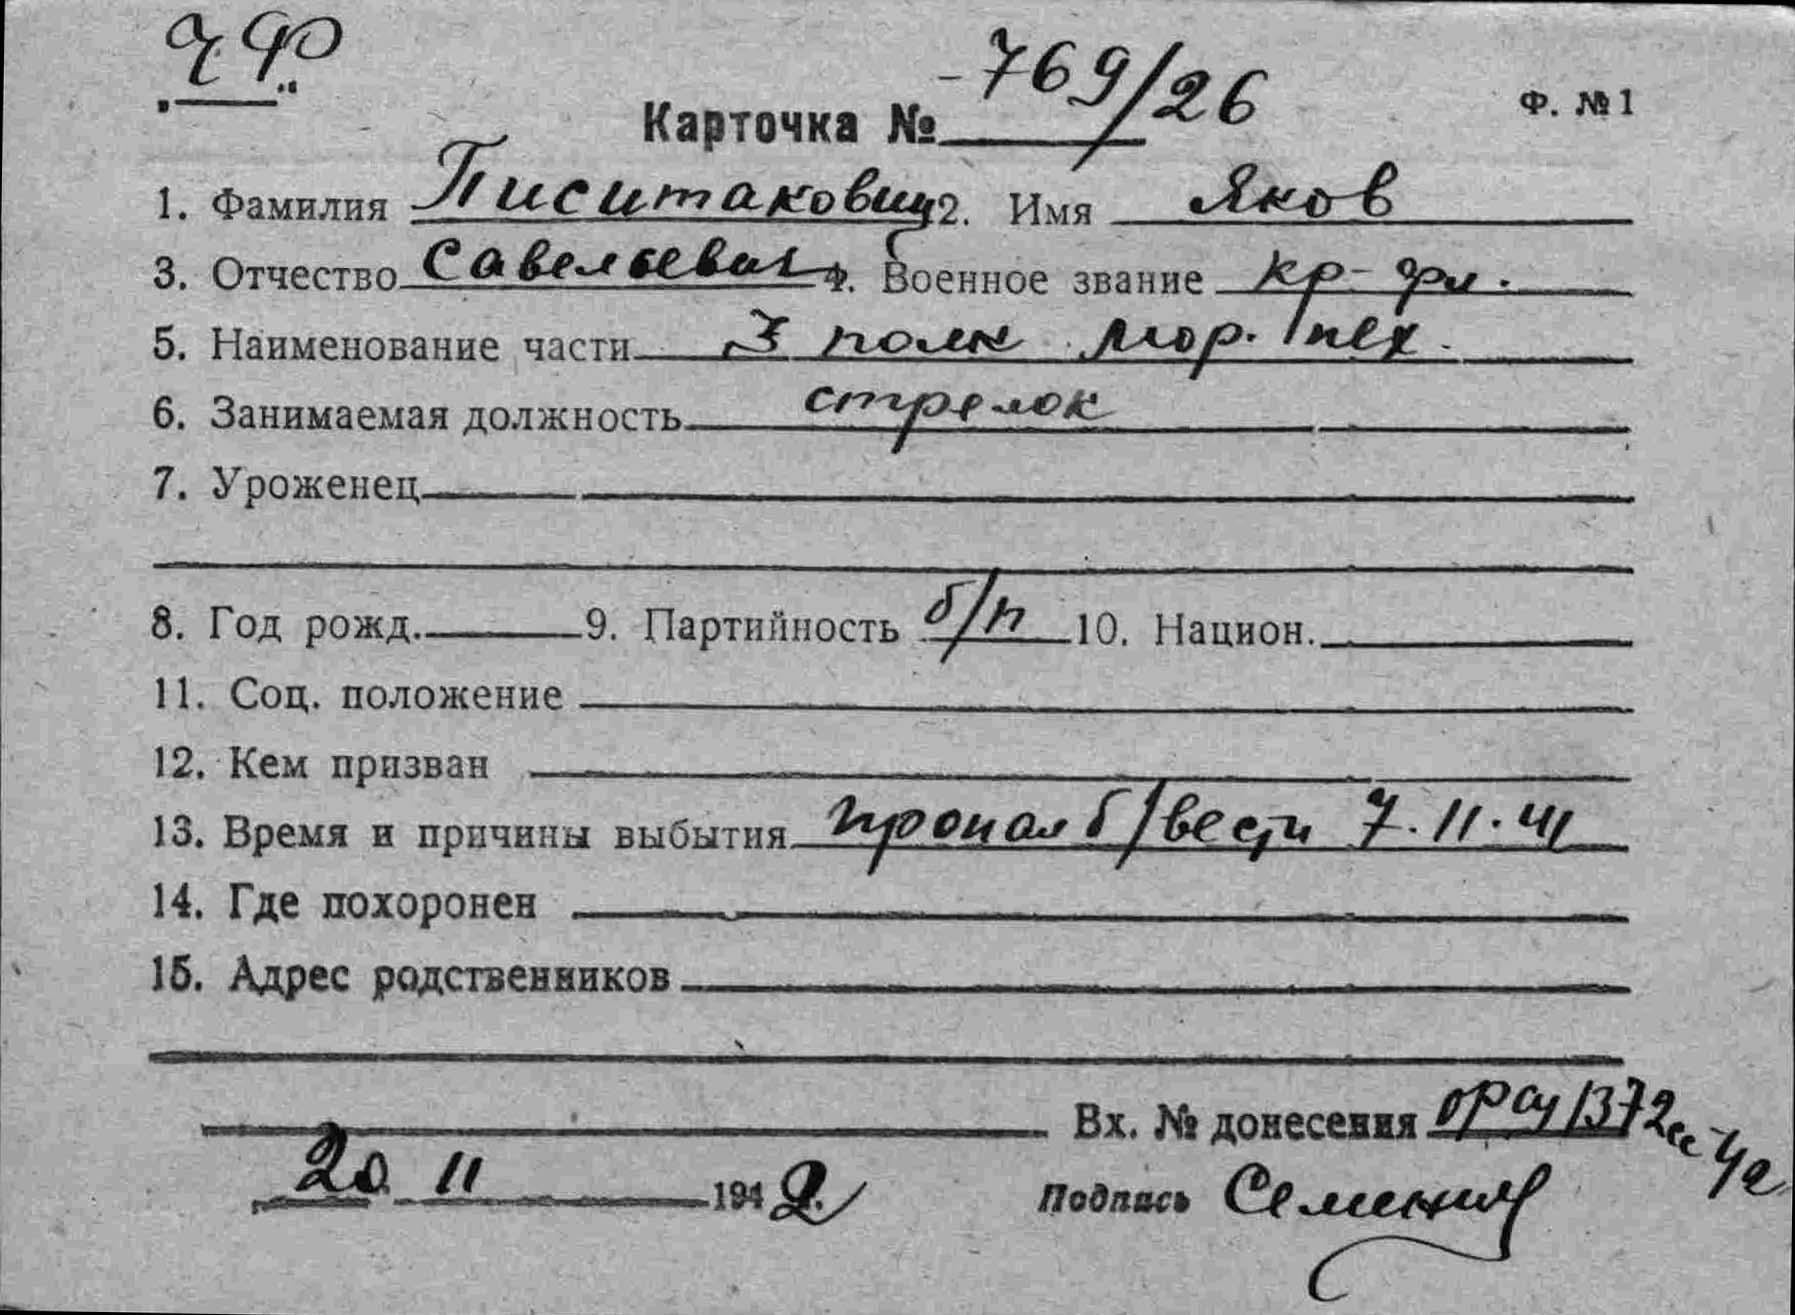 ЧФ
Карточка № -769/26 Ф. №1
1. Фамилия Писитаковщ 2. Имя Яков
3. Отчество Савельевич 4. Военное звание кр-фл.
5. Наименование части 3 полк мор. пех.
6. Занимаемая должность стрелок
7. Уроженец
8. Год рожд. 9. Партийность б/п 10. Национ.
11. Соц. положение
12. Кем призван
13. Время и причины выбытия пропал б/вести 7.11.41
14. Где похоронен
15. Адрес родственников
Вх. № донесения ОРСУ 1372сс-42
20 11 1942.
Подпись